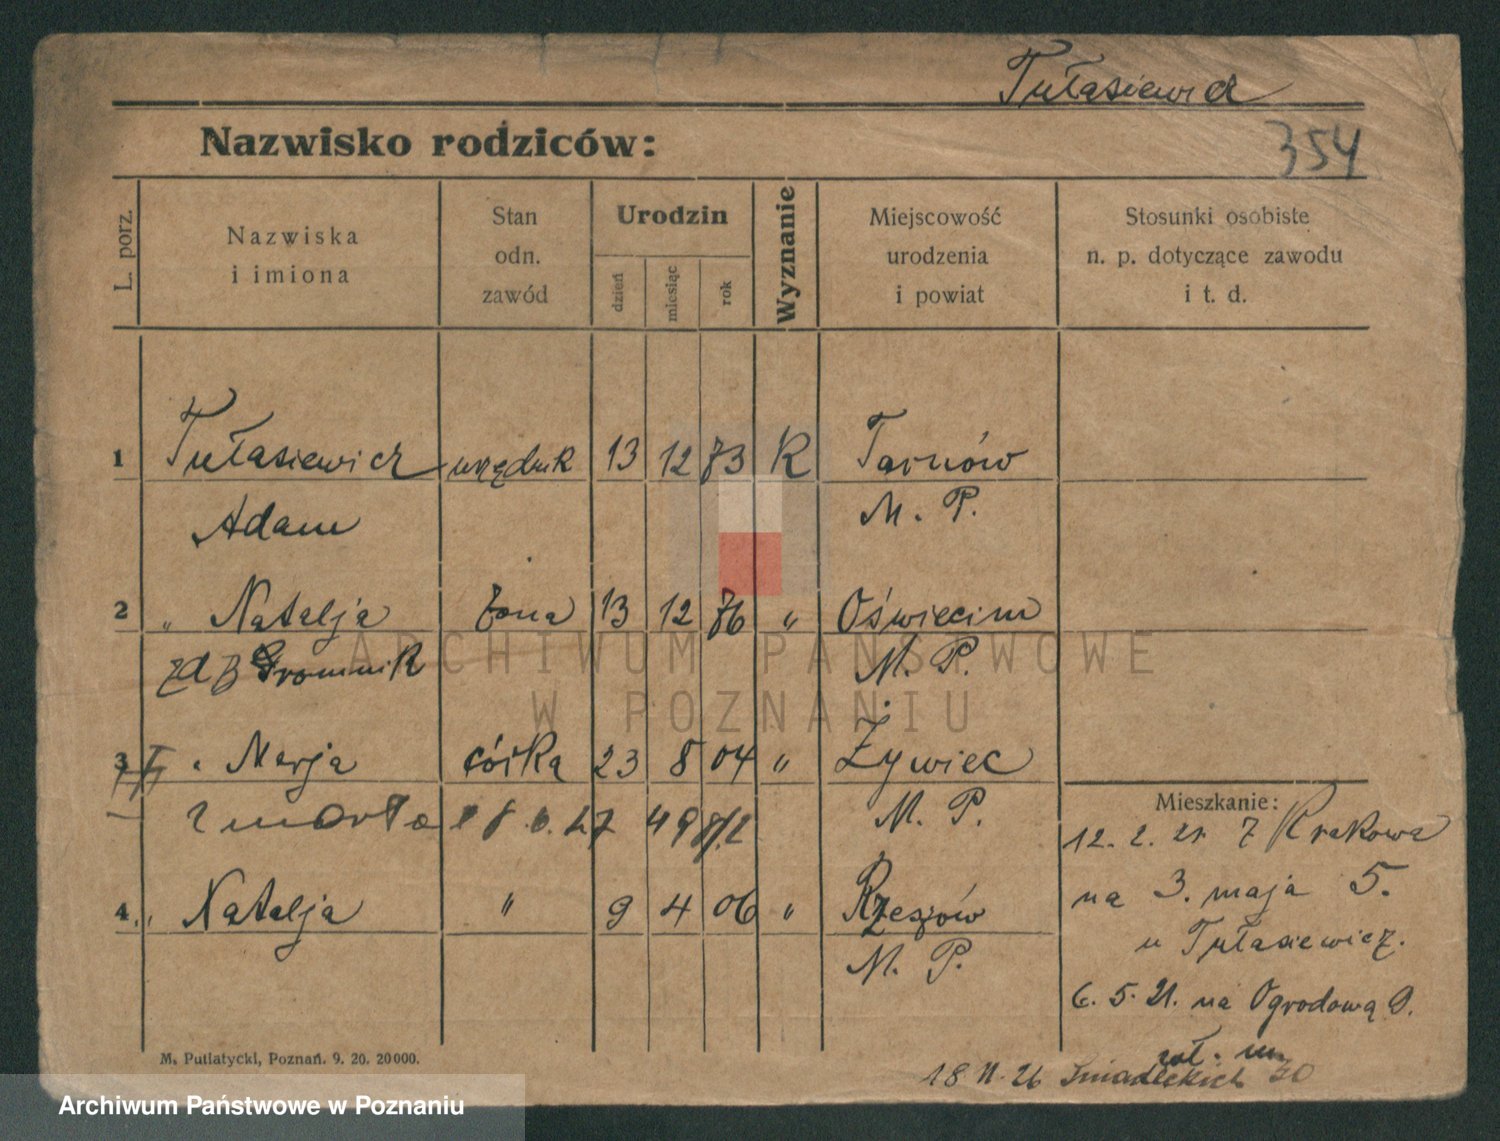 Tułasiewicz
Nazwisko rodziców:
354
L. porz.
Nazwiska
i imiona
Stan
odn.
zawód
Urodzin
dzień
miesiąc
rok
Wyznanie
Miejscowość
urodzenia
i powiat
Stosunki osobiste
n. p. dotyczące zawodu
i t. d.
1 Tułasiewicz urzędnik 13 12 73 R Tarnów
Adam M. P.
2 „ Natalja żona 13 12 76 „ Oświęcim
zd Gromnik M. P.
3 „ Marja córka 23 8 04 „ Żywiec
zmarła M. P.
4. „ Natalja „ 9 4 06 „ Rzeszów
M. P.
Mieszkanie:
12. 2. 21 z Krakowa
na 3. maja 5.
u Tułasiewicz.
6. 5. 21. na Ogrodową 9.
18 II 26 Śniadeckich 30
M. Putiatycki, Poznań. 9. 20. 20000.
ARCHIWUM PAŃSTWOWE
W POZNANIU
Archiwum Państwowe w Poznaniu